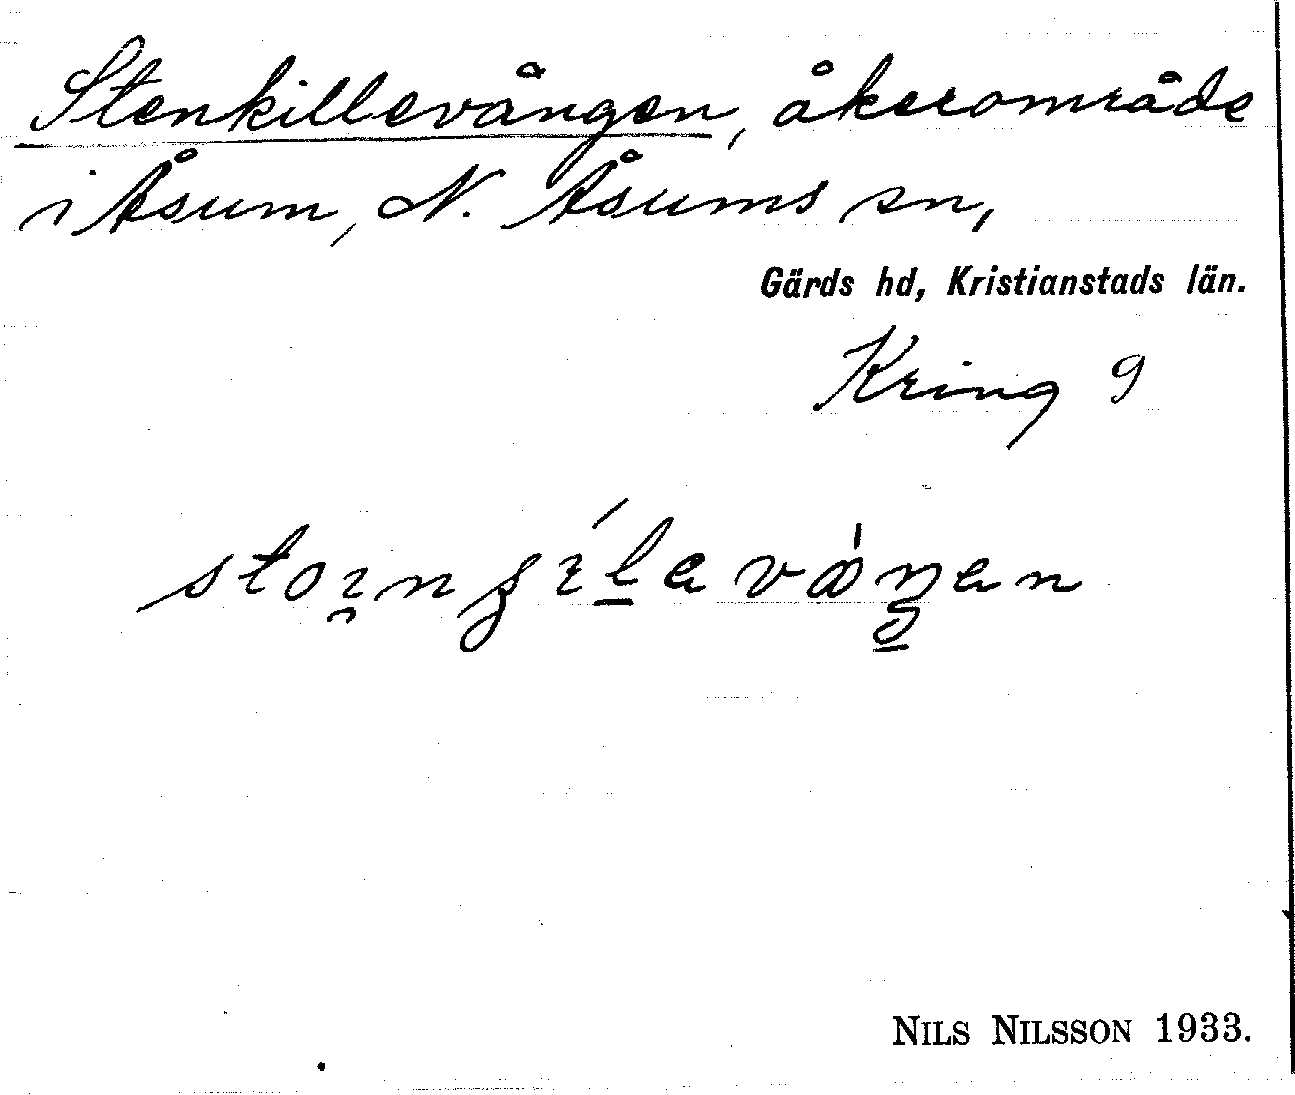 Stenkillevången, åkerområde
i Åsum, N. Åsums sn,
Gärds hd, Kristianstads län.
Kring 9
NILS NILSSON 1933.